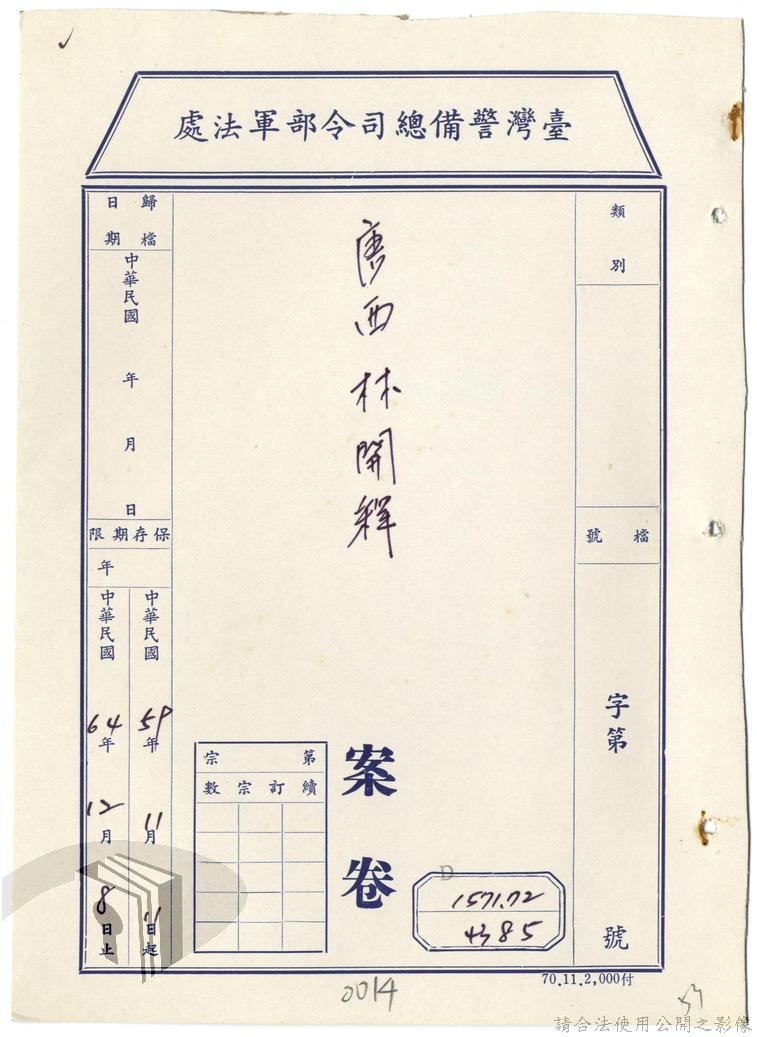 臺灣警備總司令部軍法處
類別
檔號
字第
號
唐西林開釋
案卷
第宗
續訂宗數
1571.72
4385
歸檔日期
中華民國 年 月 日
保存期限
年
中華民國59年11月11日起
中華民國64年12月8日止
70.11.2,000付
0014
請合法使用公開之影像